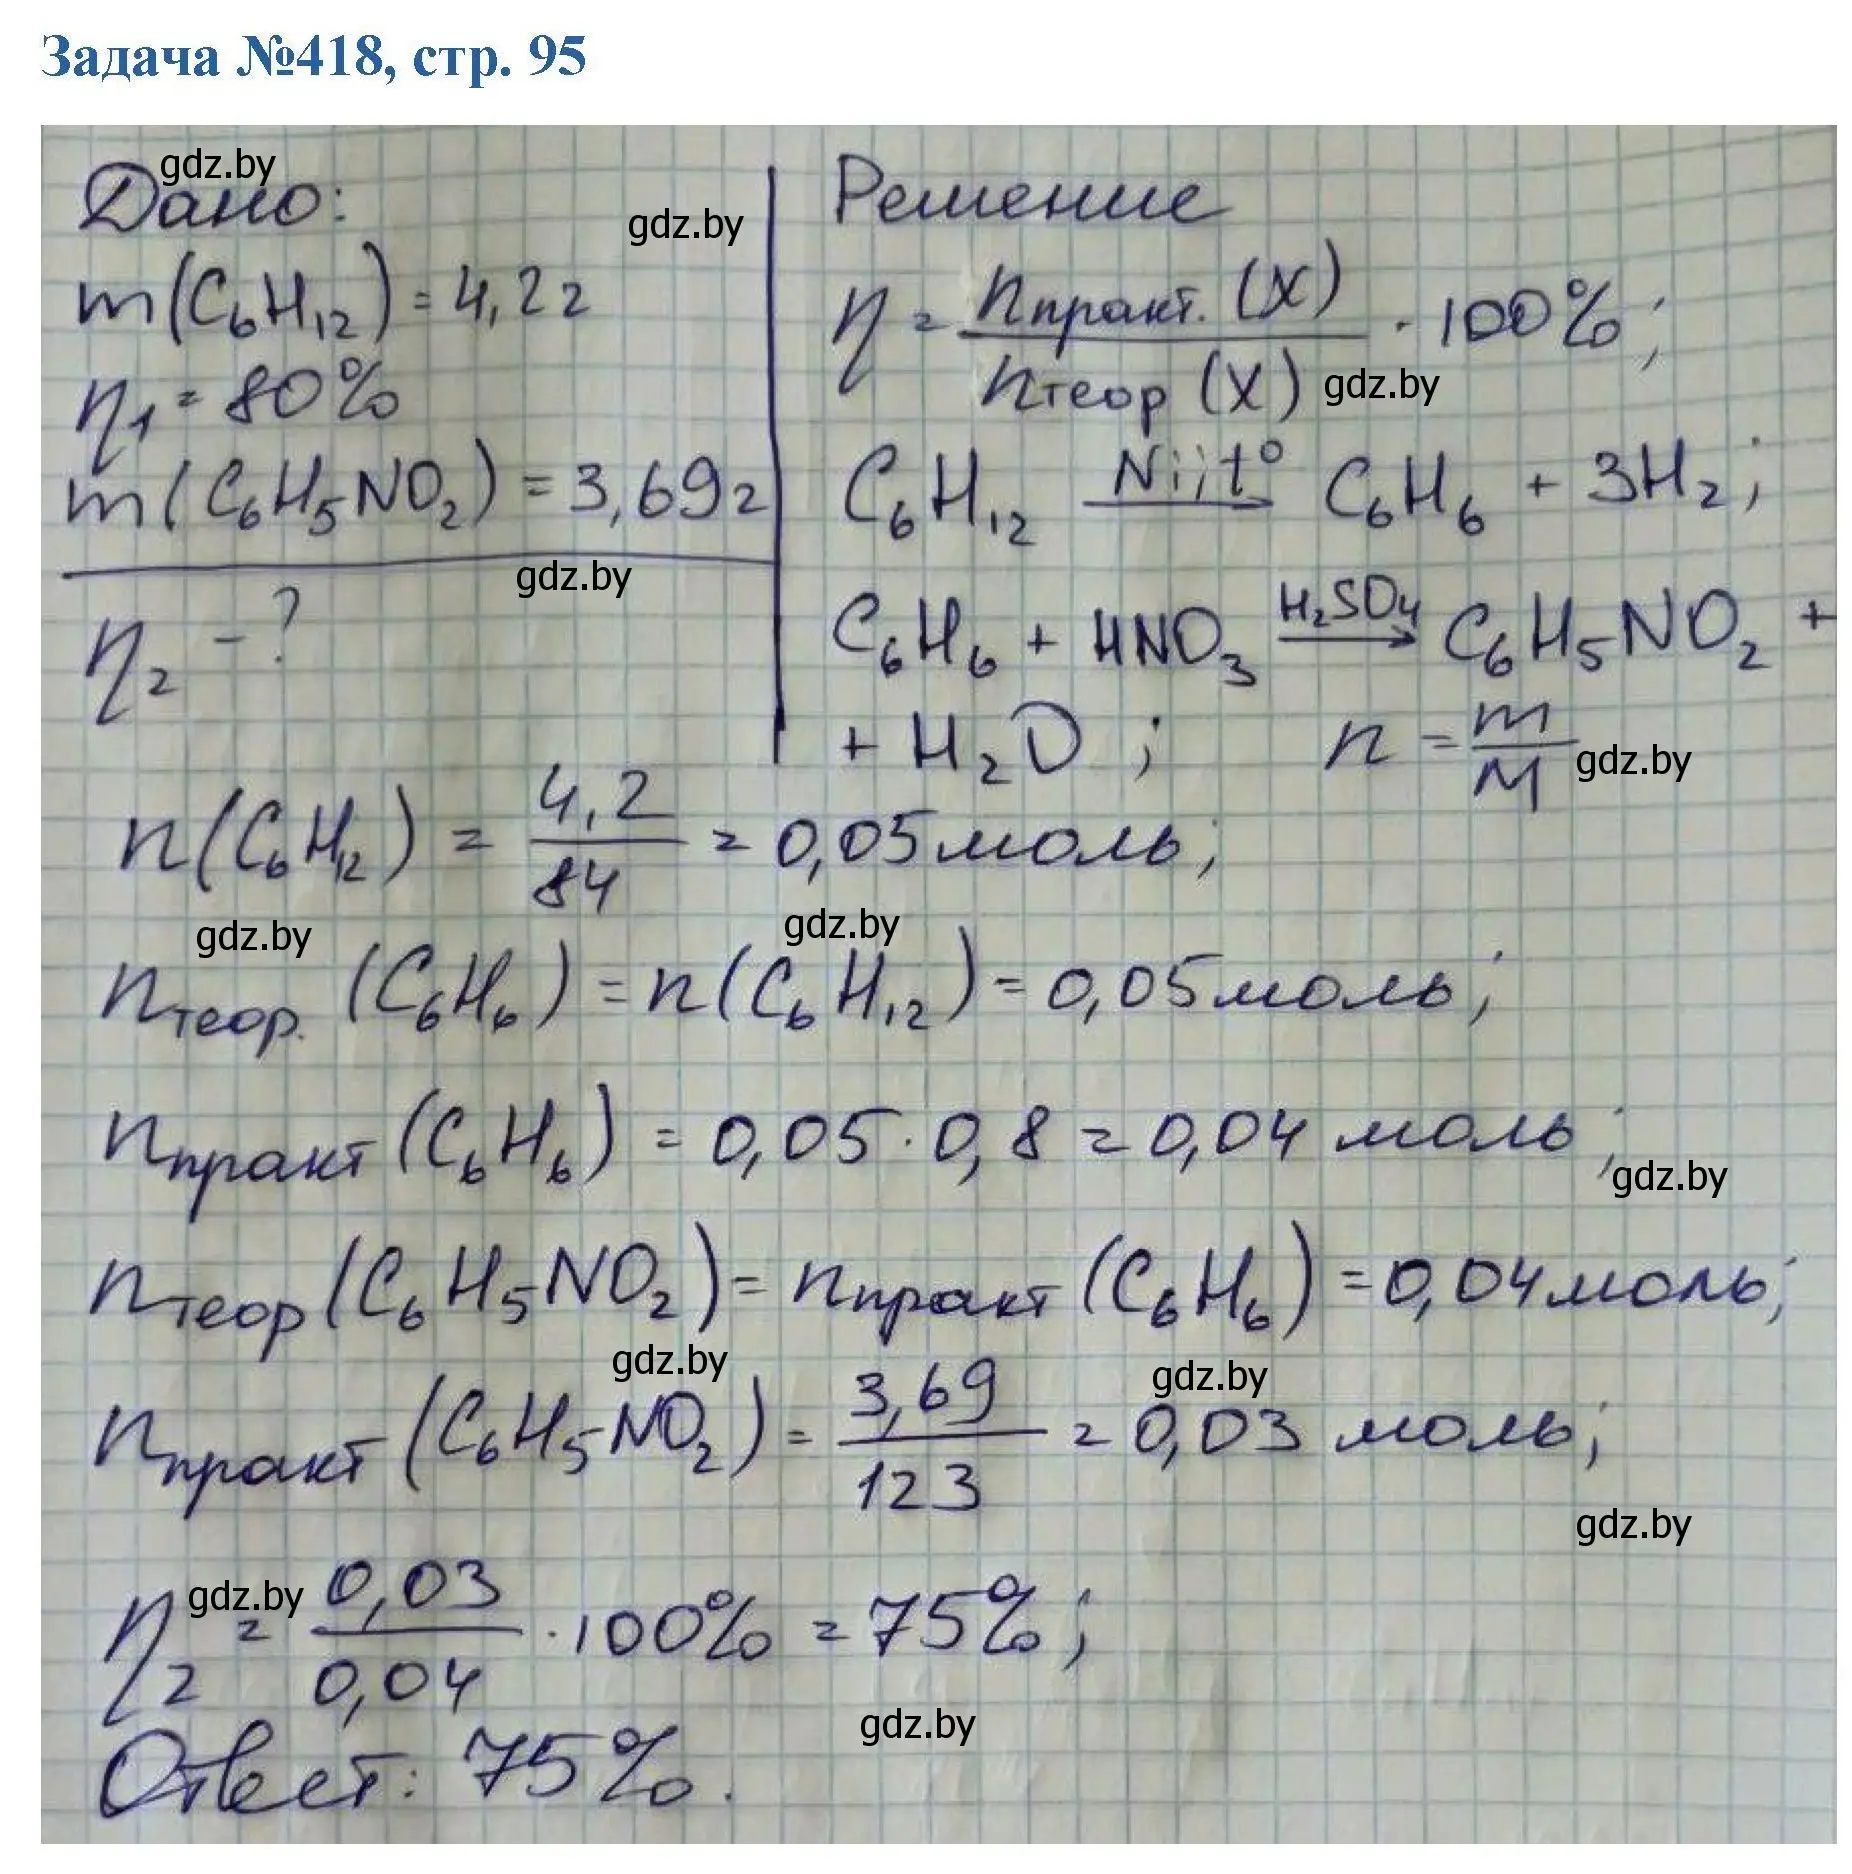 Задача №418, стр. 95
gdz.by
Дано:
m(C₆H₁₂) = 4,2г
η₁ = 80%
m(C₆H₅NO₂) = 3,69г
gdz.by
gdz.by
η₂ - ?
Решение
η = nпракт. (X) / nтеор (X) · 100%;
gdz.by
C₆H₁₂ —Ni; t°→ C₆H₆ + 3H₂;
C₆H₆ + HNO₃ —H₂SO₄→ C₆H₅NO₂ +
+ H₂O ; n = m/M
gdz.by
n(C₆H₁₂) = 4,2/84 = 0,05моль;
gdz.by
gdz.by
nтеор. (C₆H₆) = n(C₆H₁₂) = 0,05моль;
nпракт (C₆H₆) = 0,05 · 0,8 = 0,04 моль;
gdz.by
nтеор (C₆H₅NO₂) = nпракт (C₆H₆) = 0,04моль;
gdz.by
gdz.by
nпракт (C₆H₅NO₂) = 3,69/123 = 0,03 моль;
gdz.by
gdz.by
η₂ = 0,03/0,04 · 100% = 75%;
gdz.by
Ответ: 75%.